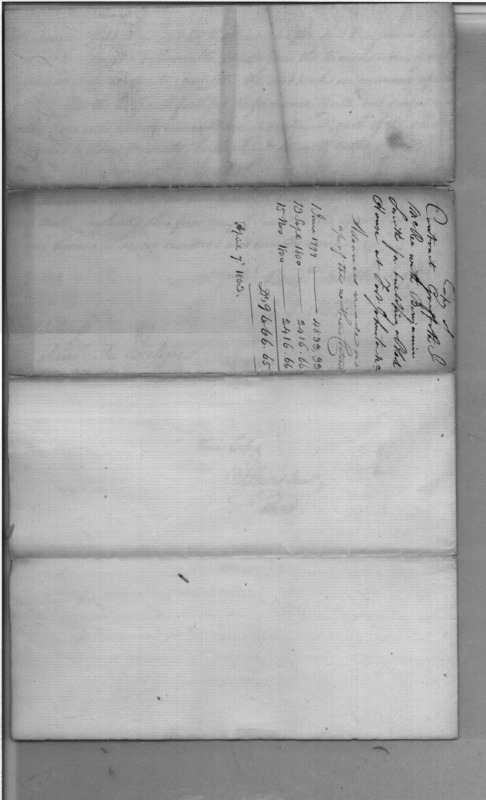 Copy of
Contract Griffith J
McRee with Benjamin
Smith for building Block
House at Fort Johnston
Advances made on
of the within Contract
1 June 1799 — 4833.33
13 Sept 1800 — 2416.66
15 Nov 1800 — 2416.66
9666.65
April 7th 1802.